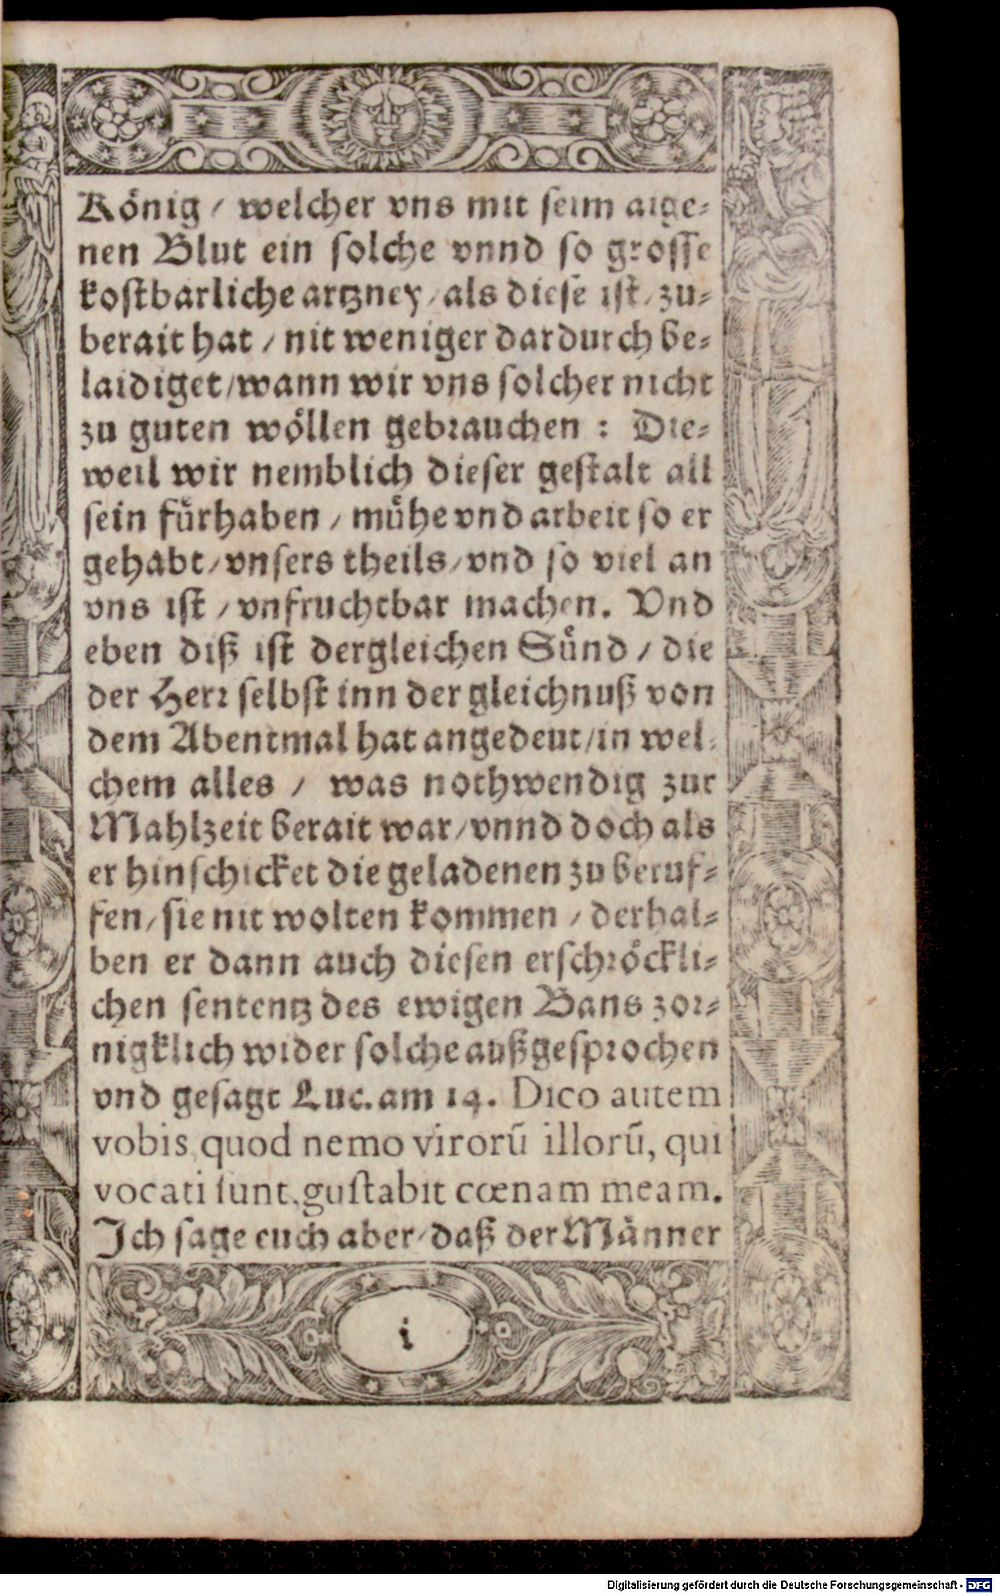 König / welcher vns mit seim aige⸗
nen Blut ein solche vnnd so grosse
kostbarliche artzney / als diese ist / zu⸗
berait hat / nit weniger dardurch be⸗
laidiget / wann wir vns solcher nicht
zu guten wöllen gebrauchen : Die⸗
weil wir nemblich dieser gestalt all
sein fürhaben / mühe vnd arbeit so er
gehabt / vnsers theils / vnd so viel an
vns ist / vnfruchtbar machen. Vnd
eben diß ist dergleichen Sünd / die
der Herr selbst inn der gleichnuß von
dem Abentmal hat angedeut / in wel⸗
chem alles / was nothwendig zur
Mahlzeit berait war / vnnd doch als
er hinschicket die geladenen zu beruf⸗
fen / sie nit wolten kommen / derhal⸗
ben er dann auch diesen erschröckli⸗
chen sententz des ewigen Bans zor⸗
nigklich wider solche außgesprochen
vnd gesagt Luc. am 14. Dico autem
vobis, quod nemo virorũ illorũ, qui
vocati sunt, gustabit cœnam meam.
Ich sage euch aber / daß der Männer
i
Digitalisierung gefördert durch die Deutsche Forschungsgemeinschaft - DFG